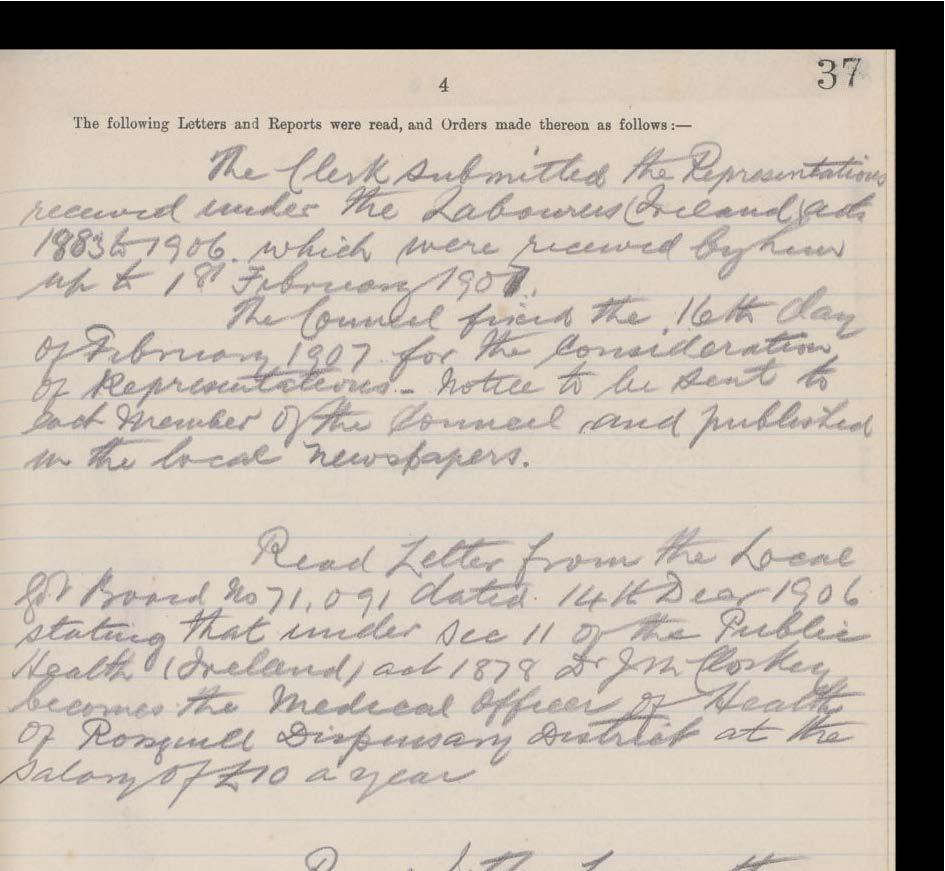 37
4
The following Letters and Reports were read, and Orders made thereon as follows :—
The Clerk submitted the Representations
received under the Labourers (Ireland) acts
1883 to 1906. which were received by him
up to 1st February 1907.
The Council fixed the 16th day
of February 1907 for the Consideration
of Representations - Notice to be sent to
each Member of the Council and published
in the local newspapers.
Read Letter from the Local
Govt Board No 71,091 dated 14th Decr 1906
stating that under Sec 11 of the Public
Health (Ireland) act 1878 Dr J McCloskey
becomes the Medical Officer of Health
of Rosguill Dispensary District at the
salary of £10 a year